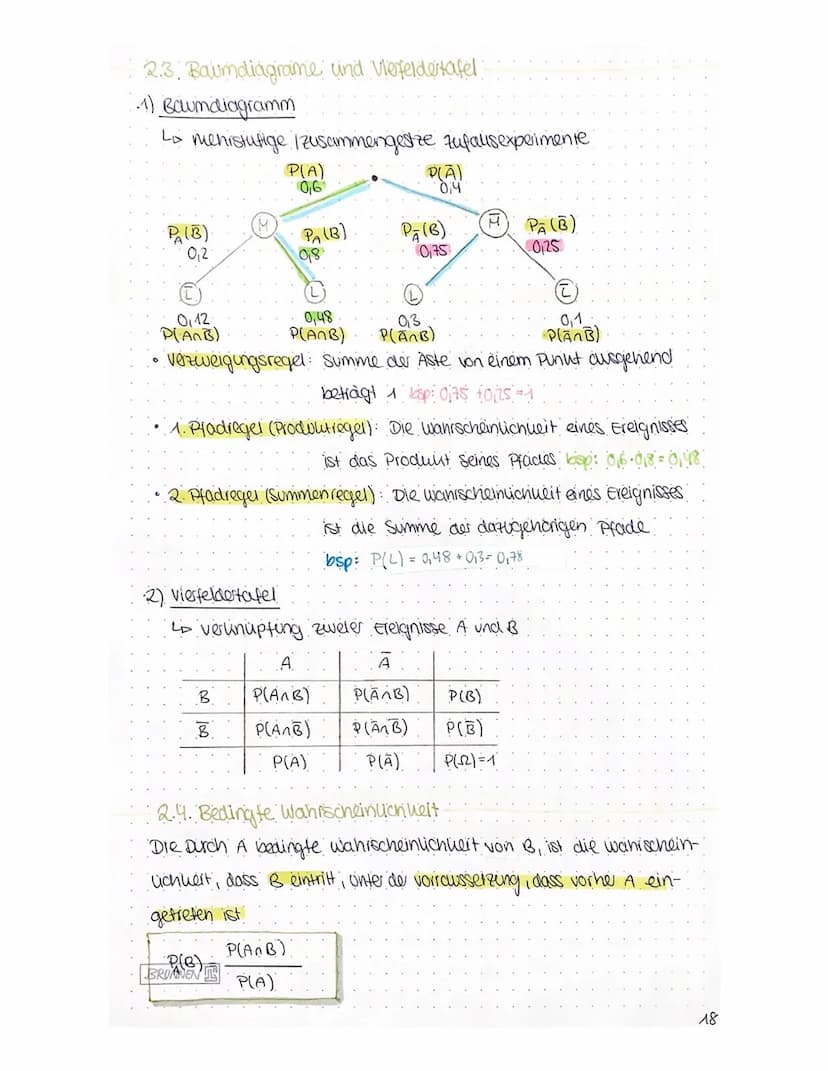 2.3. Baumdiagrame und Vierfeldertafel
1) Baumdiagramm
↳ mehrstufige / zusammengestze Zufallsexperimente
P(A) P(Ā)
0,6 0,4
M M̄
P_A(B̄) P_A(B) P_Ā(B) P_Ā(B̄)
0,2 0,8 0,75 0,25
L̄ L L L̄
0,12 0,48 0,3 0,1
P(A∩B̄) P(A∩B) P(Ā∩B) P(Ā∩B̄)
• Verzweigungsregel: Summe der Äste von einem Punkt ausgehend
beträgt 1 bsp: 0,75 + 0,25 = 1
• 1. Pfadregel (Produktregel): Die Wahrscheinlichkeit eines Ereignisses
ist das Produkt seines Pfades bsp: 0,6 · 0,8 = 0,48
• 2. Pfadregel (Summenregel): Die Wahrscheinlichkeit eines Ereignisses
ist die Summe der dazugehörigen Pfade
bsp: P(L) = 0,48 + 0,3 = 0,78
2) Vierfeldertafel
↳ Verknüpfung zweier Ereignisse A und B
A Ā
B P(A∩B) P(Ā∩B) P(B)
B̄ P(A∩B̄) P(Ā∩B̄) P(B̄)
P(A) P(Ā) P(Ω)=1
2.4. Bedingte Wahrscheinlichkeit
Die Durch A bedingte Wahrscheinlichkeit von B, ist die Wahrschein-
lichkeit, dass B eintritt, unter der Vorraussetzung, dass vorher A ein-
getreten ist
P_A(B) = P(A∩B)
P(A)
BRUNNEN
18